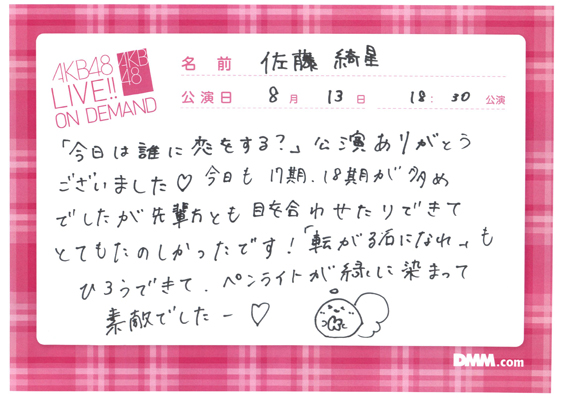 AKB48
LIVE!!
ON DEMAND
AKB
48
名前 佐藤 綺星
公演日 8月 13日 18:30公演
「今日は誰に恋をする?」公演ありがとう
ございました♡ 今日も 17期、18期が多め
でしたが先輩方とも目を合わせたりできて
とてもたのしかったです!「転がる石になれ」も
ひろうできて、ペンライトが緑に染まって
素敵でしたー♡
DMM.com